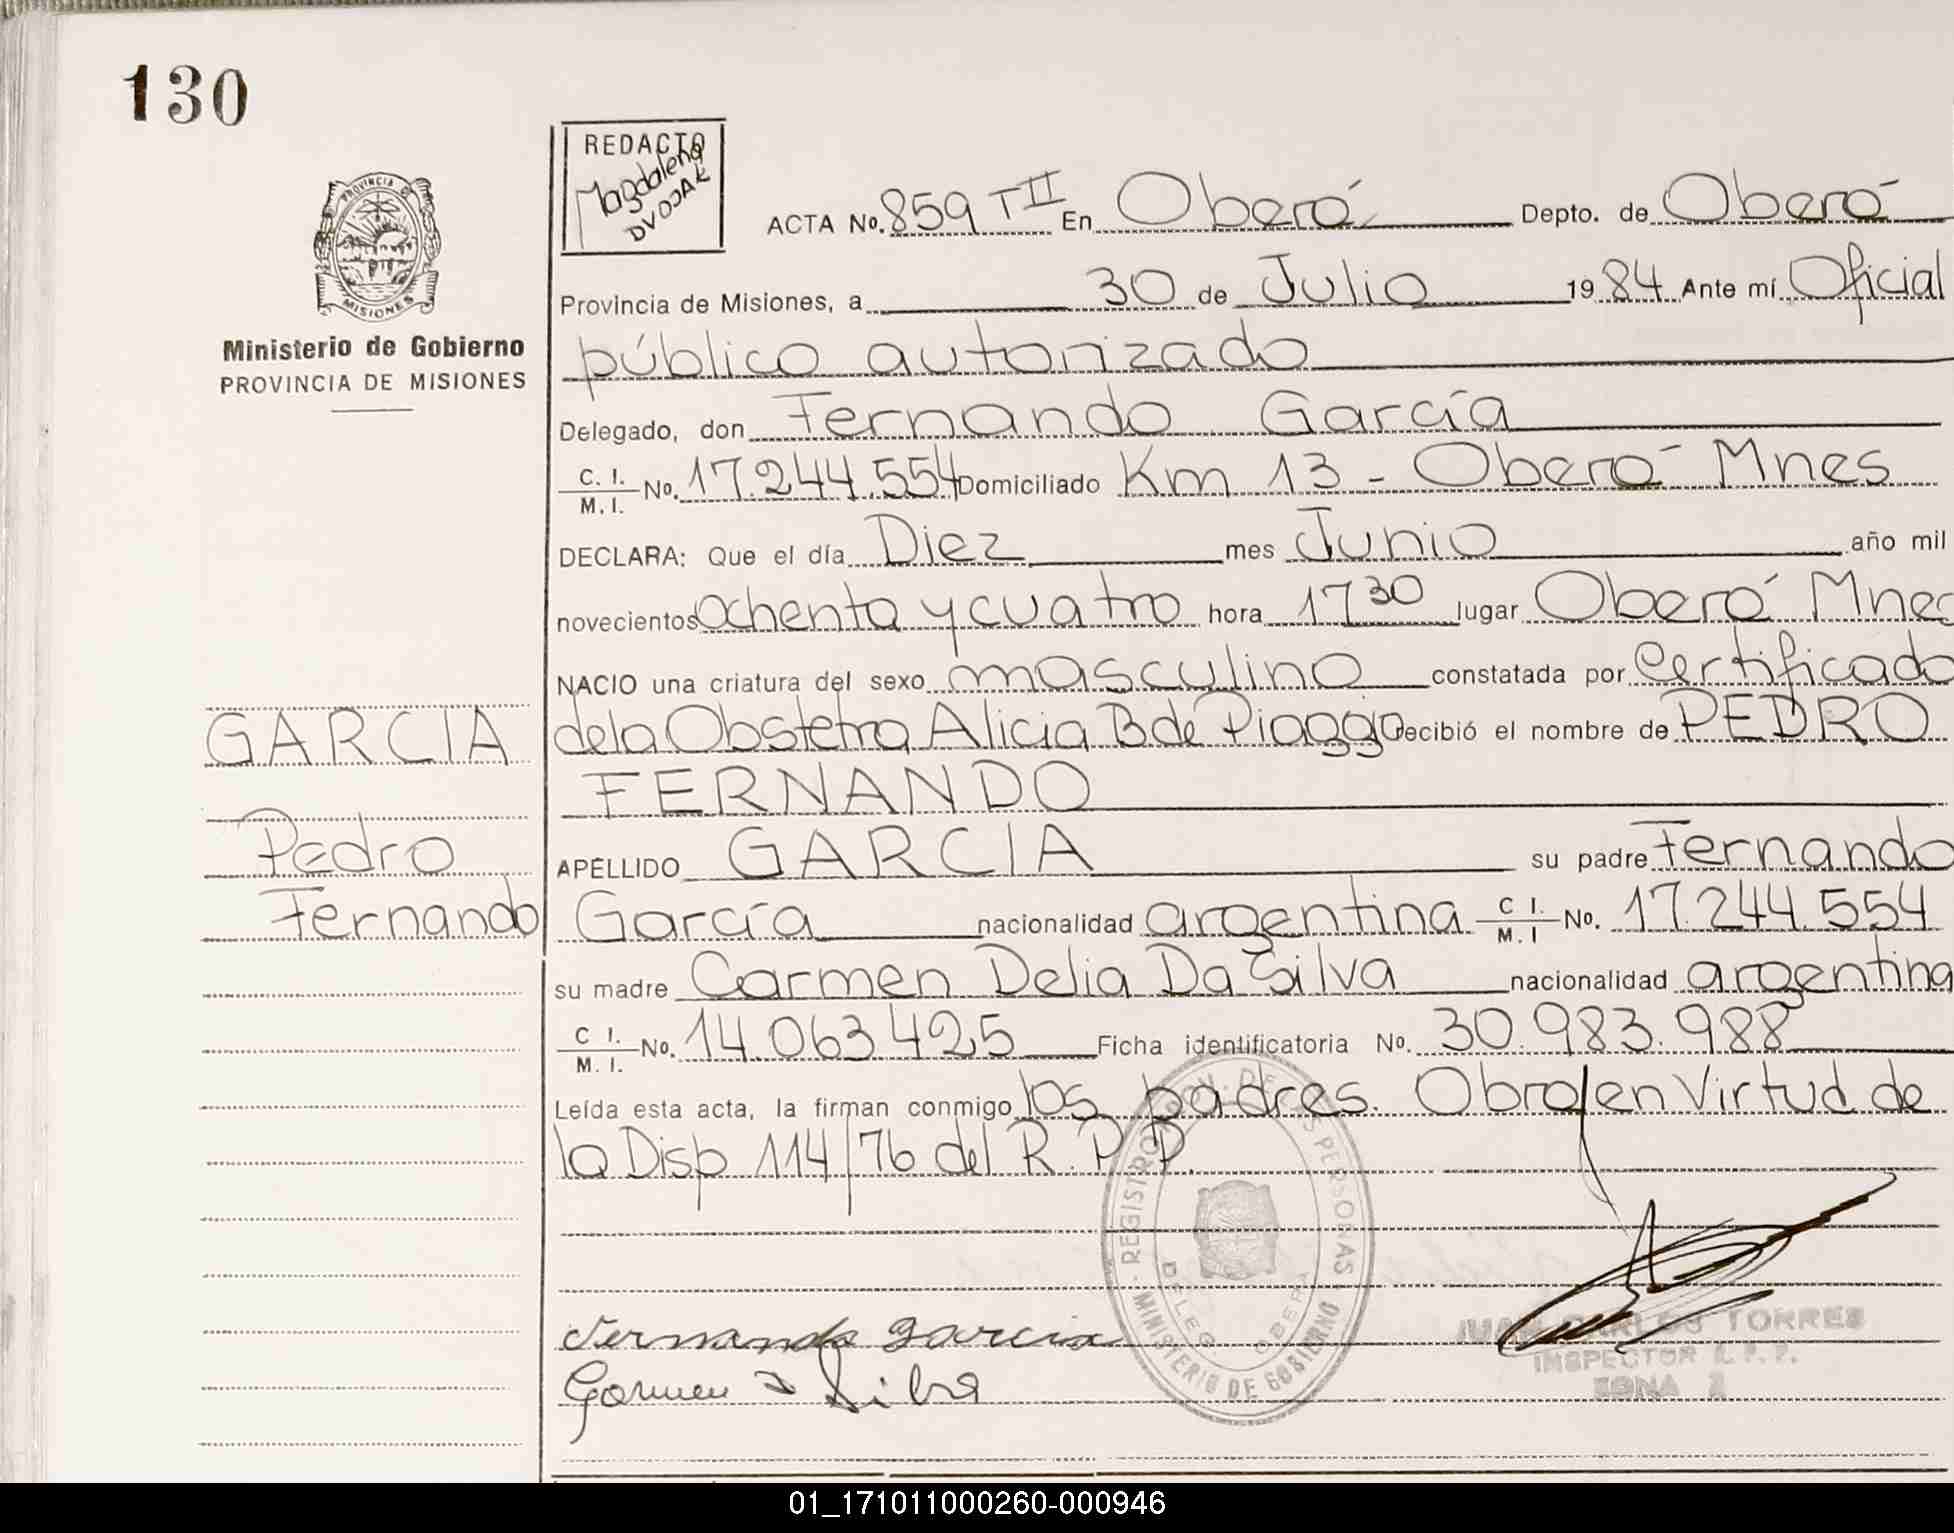 130
REDACTO
Magdalena
DVOJAK
PROVINCIA DE
MISIONES
Ministerio de Gobierno
PROVINCIA DE MISIONES
ACTA No. 859 TII En Oberá Depto. de Oberá
Provincia de Misiones, a 30 de Julio 1984 Ante mí Oficial
público autorizado
Delegado, don Fernando García
C. I. / M. I. No. 17.244.554 Domiciliado Km 13 - Oberá Mnes
DECLARA: Que el día Diez mes Junio año mil
novecientos ochenta y cuatro hora 17 30 lugar Oberá Mnes
NACIO una criatura del sexo masculino constatada por Certificado
de la Obstetra Alicia B de Piaggio recibió el nombre de PEDRO
FERNANDO
APELLIDO GARCIA su padre Fernando
García nacionalidad argentina C I. / M. I No. 17.244.554
su madre Carmen Delia Da Silva nacionalidad argentina
C I. / M. I. No. 14.063425 Ficha identificatoria No. 30.983.988
Leída esta acta, la firman conmigo los padres. Obra en Virtud de
la Disp 114/76 del R. P. P.
GARCIA
Pedro
Fernando
REGISTRO PROV. DE LAS PERSONAS
MINISTERIO DE GOBIERNO
DELEG OBERA
Fernando Garcia
Carmen D Silva
JUAN CARLOS TORRES
INSPECTOR R. P. P.
ZONA
01_171011000260-000946